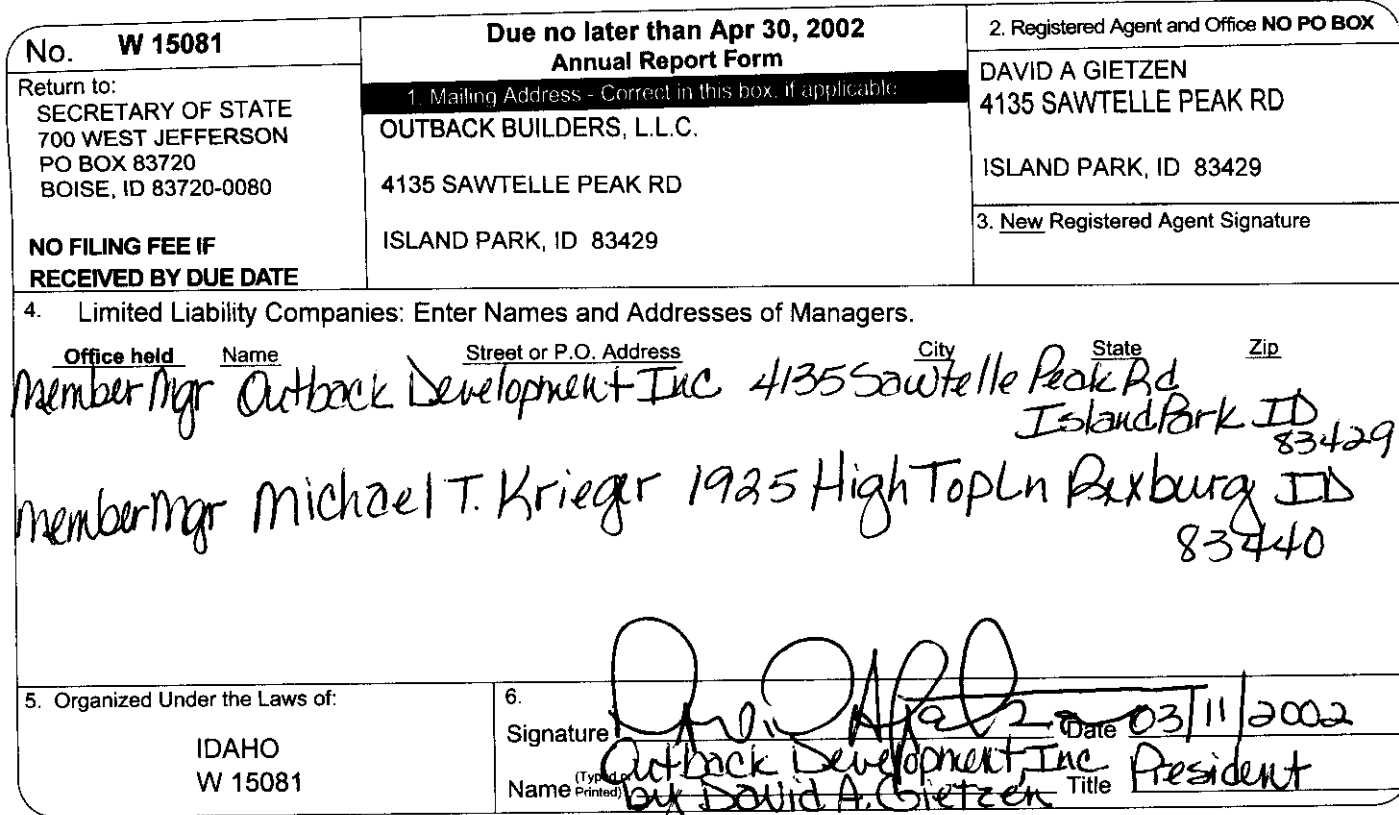 No. W 15081
Return to:
SECRETARY OF STATE
700 WEST JEFFERSON
PO BOX 83720
BOISE, ID 83720-0080
NO FILING FEE IF
RECEIVED BY DUE DATE
Due no later than Apr 30, 2002
Annual Report Form
1. Mailing Address - Correct in this box, if applicable
OUTBACK BUILDERS, L.L.C.
4135 SAWTELLE PEAK RD
ISLAND PARK, ID 83429
2. Registered Agent and Office NO PO BOX
DAVID A GIETZEN
4135 SAWTELLE PEAK RD
ISLAND PARK, ID 83429
3. New Registered Agent Signature
4. Limited Liability Companies: Enter Names and Addresses of Managers.
Office held Name Street or P.O. Address City State Zip
Member Mgr Outback Development Inc 4135 Sawtelle Peak Rd
Island Park ID
83429
Member Mgr Michael T. Krieger 1925 High Top Ln Rexburg ID
83440
5. Organized Under the Laws of:
IDAHO
W 15081
6.
Signature Date 03/11/2002
Outback Development, Inc
Name (Typed or Printed) by David A. Gietzen Title President